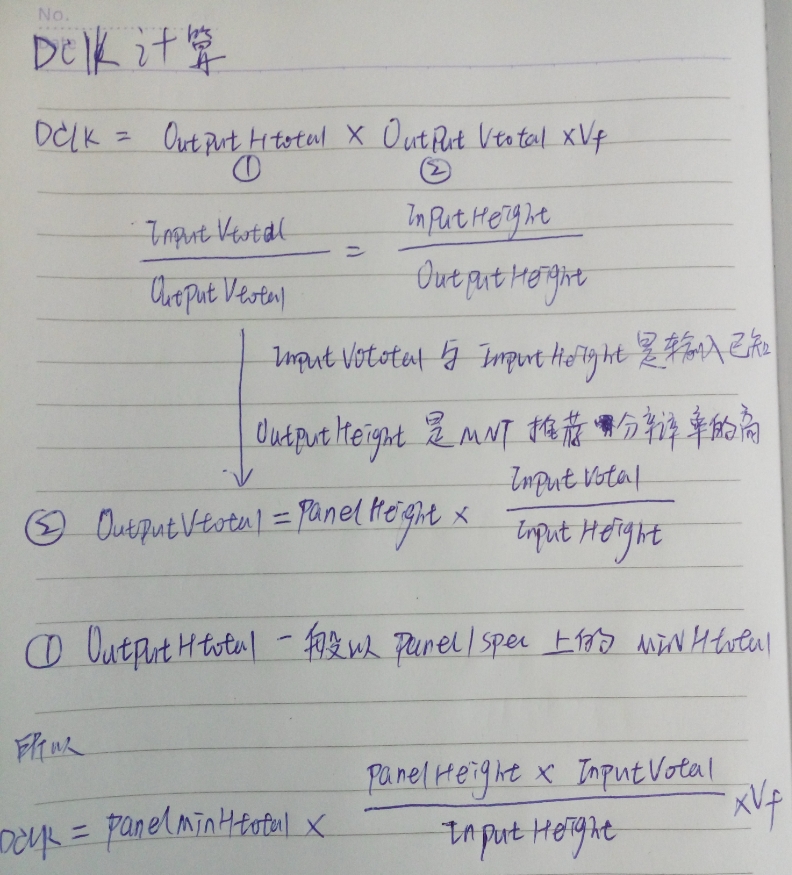 No.
Dclk 计算
Dclk = OutputHtotal × OutputVtotal ×Vf
① ②
InputVtotal / OutputVtotal = InputHeight / OutputHeight
InputVototal 与 InputHeight 是输入已知
OutputHeight 是 MNT 推荐 分辛译率的高
② OutputVtotal = PanelHeight × InputVotal / InputHeight
① OutputHtotal 一般以 panel/spec 上的 MiNHtotal
所以
Dclk = panelminHtotal × PanelHeight × InputVotal / InputHeight ×Vf